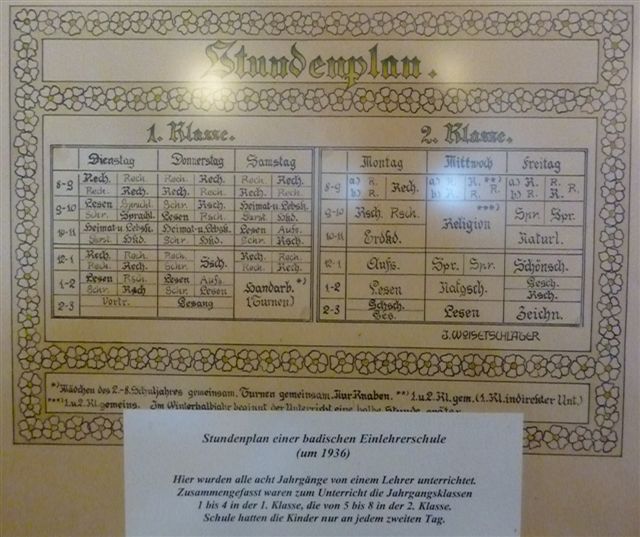 Stundenplan.
1. Klasse. 2. Klasse.
Dienstag Donnerstag Samstag Montag Mittwoch Freitag
8-9 Rech. Rech. Rech. Rech. Rech. Rech. 8-9 a) R. Rech. a) R. R. **) a) R. R. R.
Rech. Rech. Rech. Rech. Rech. Rech. b) R. b) R. R. b) R. R.
9-10 Lesen Sprachl. Schr. Rsch. Heimat-u. Lebsk. 9-10 Rsch. Rsch. ***) Religion Spr. Spr.
Schr. Sprachl. Lesen Rsch. Hkd.
10-11 Heimat-u. Lebsk. Heimat-u. Lebsk. Lesen Aufs. 10-11 Erdkd. Naturl.
Hkd. Schr. Hkd. Schr. Lesen
12-1 Rech. Rech. Rech. Rech. Rech. 12-1 Aufs. Spr. Spr. Schönsch.
Rech. Rech. Rech. Rech. Rech.
1-2 Lesen Rsch. Lesen Aufs. Handarb. *) 1-2 Lesen Gesch.
Schr. Rsch Schr. Lesen (Turnen) Rsch.
2-3 Vortr. Gesang 2-3 Ges. Lesen Zeichn.
J. WOISETSCHLÄGER
*) Mädchen des 2.-8. Schuljahres gemeinsam. Turnen gemeinsam. Nur Knaben. **) 1. u. 2. Kl. gem. (1. Kl. indirekter Unt.)
***) 1. u. 2. Kl. gemeins. Im Winterhalbjahr beginnt der Unterricht eine halbe Stunde später
Stundenplan einer badischen Einlehrerschule
(um 1936)
Hier wurden alle acht Jahrgänge von einem Lehrer unterrichtet.
Zusammengefasst waren zum Unterricht die Jahrgangsklassen
1 bis 4 in der 1. Klasse, die von 5 bis 8 in der 2. Klasse.
Schule hatten die Kinder nur an jedem zweiten Tag.